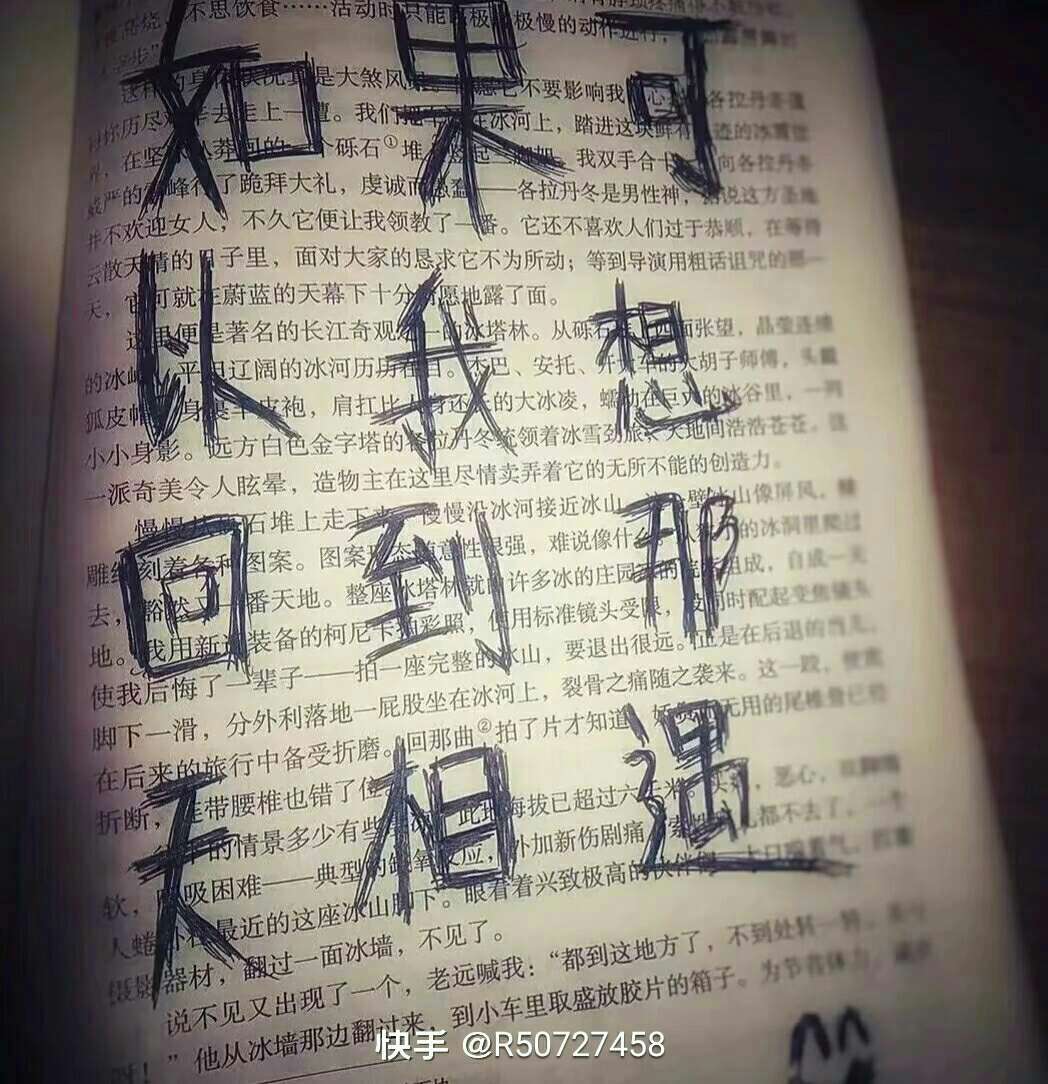 如果可
以我想
回到那
天相遇
不思饮食……活动时只能
极慢的动作进行，
是大煞风
不要影响我
各拉丹冬
去走上一遭。我们
冰河上，踏进这块
的冰雪世
界，在坚
砾石①堆
我双手合十
向各拉丹冬
威严的
峰行了跪拜大礼，虔诚而愚蠢——各拉丹冬是男性神，据说这方圣地
并不欢迎女人，不久它便让我领教了一番。它还不喜欢人们过于恭顺，在等待
云散天晴的日子里，面对大家的恳求它不为所动；等到导演用粗话诅咒的那一
天，它可就在蔚蓝的天幕下十分情愿地露了面。
这里便是著名的长江奇观之一的冰塔林。从砾石
四面张望，晶莹连绵
的冰峰、平坦辽阔的冰河历历在目。杰巴、安托、开大车的大胡子师傅，头戴
狐皮帽，身裹羊皮袍，肩扛比人身还长的大冰凌，蠕动在巨大的冰谷里，一列
小小身影。远方白色金字塔的各拉丹冬统领着冰雪劲旅，天地间浩浩苍苍。这
一派奇美令人眩晕，造物主在这里尽情卖弄着它的无所不能的创造力。
慢慢从砾石堆上走下来，慢慢沿冰河接近冰山。这一壁冰山像屏风，精
雕细刻着各种图案。图案形态随意性很强，难说像什么。从狭小的冰洞里爬过
去，豁然又一番天地。整座冰塔林就由许多冰的庄园冰的院落组成，自成一天
地。我用新近装备的柯尼卡拍彩照，使用标准镜头受限，没同时配起变焦镜头
使我后悔了一辈子——拍一座完整的冰山，要退出很远。正是在后退的当儿，
脚下一滑，分外利落地一屁股坐在冰河上，裂骨之痛随之袭来。这一跤，使我
在后来的旅行中备受折磨。回那曲②拍了片才知道，
无用的尾椎骨已经
折断，连带腰椎也错了位。
的情景多少有些
此地海拔已超过六千米，头痛，恶心，双脚绵
软，呼吸困难——典型的缺氧反应，外加新伤剧痛，
都不去了，一个
人蜷卧在最近的这座冰山脚下。眼看着兴致极高的伙伴们
摄影器材，翻过一面冰墙，不见了。
说不见又出现了一个，老远喊我：“都到这地方了，不到处转一转，
啊！”他从冰墙那边翻过来，到小车里取盛放胶片的箱子。为节省体力，
快手 @R50727458